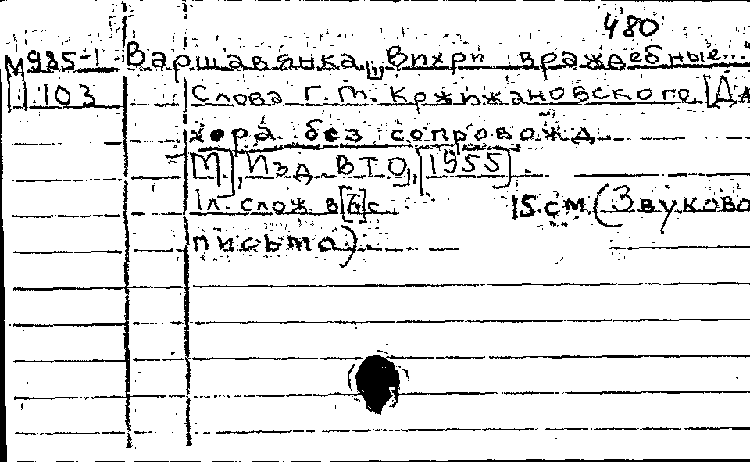 480
М985-1 Варшавянка. „Вихри враждебные...
103 Слова Г.М. Кржижановского. [Дл
хора без сопровожд.
[М.], Изд. ВТО, [1955].
1 л. слож в [6] с. 15 см. (Звуково
письмо).